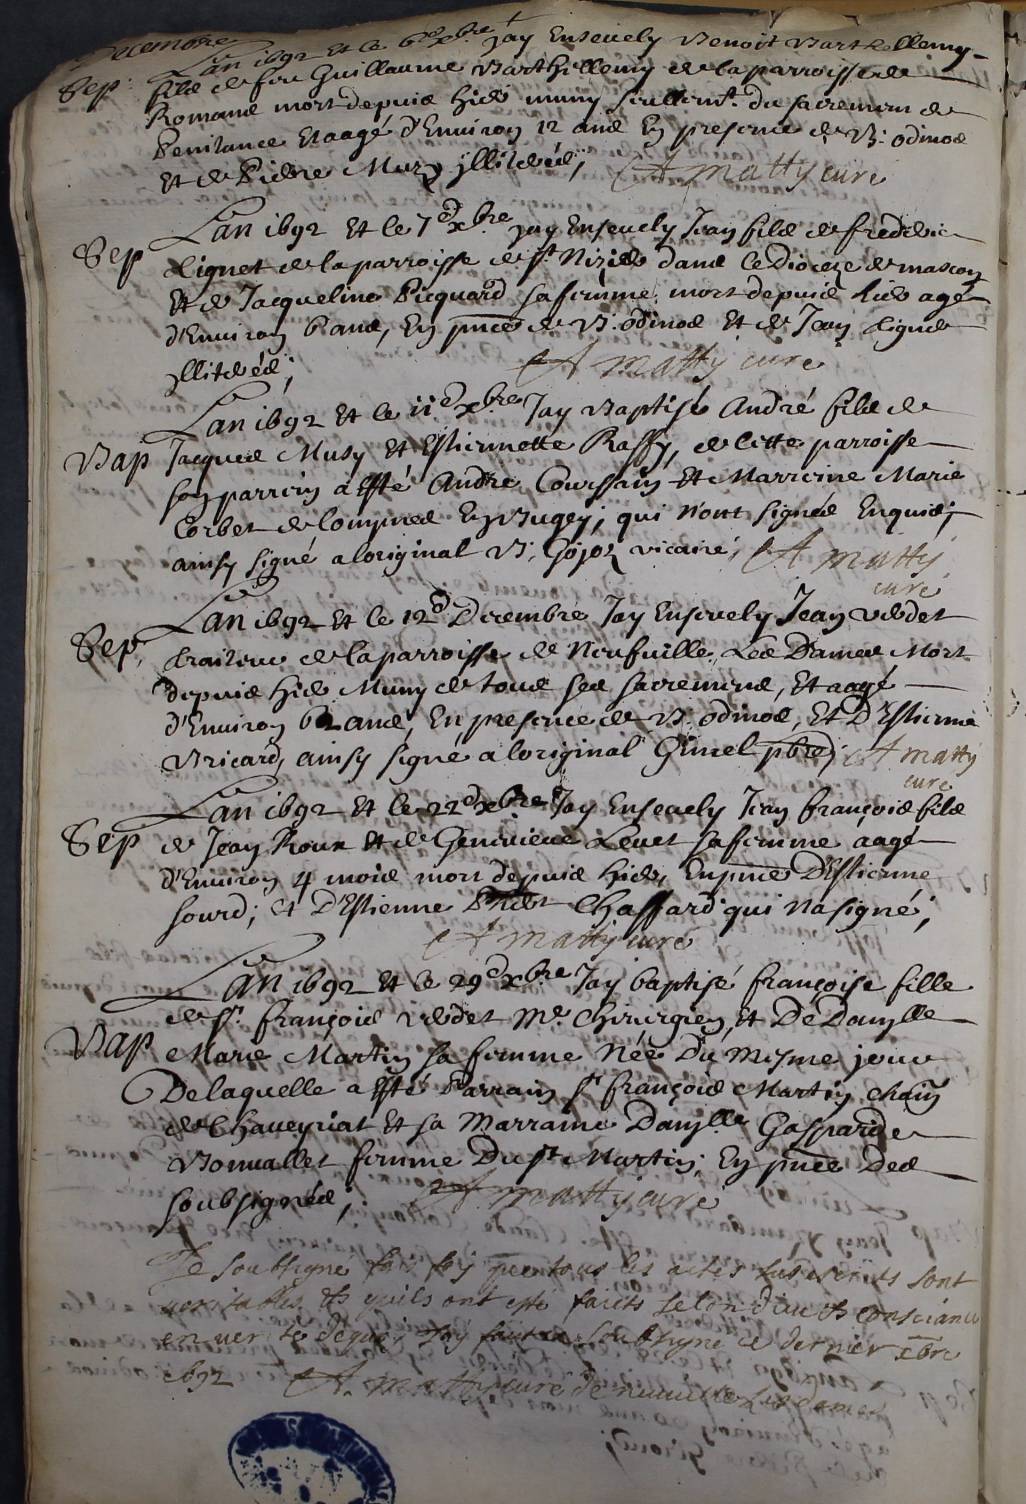 Decembre
Lan 1692 Et le 6e xbre Jay Enseuely Benoit Barthellemy
Sep. filz de feu Guillaume Barthellemy de la parroisse de
Romans mort depuis hier muny seullemt. du sacremens de
Penitance Et aagé d'Enuiron 12 ans En presence de B. odinos
Et de Pierre Muzy jllitérés; A matty curé
Lan 1692 Et le 7e xbre jay Enseuely Jean filz de frederic
Sep Lignet de la parroisse de St. Nizier dans le Dioceze de mascon
Et de Jacqueline Picquard sa femme, mort depuis hier agé
d'Enuiron 6 ans, En pnce de B. odinos Et de Jean Lignet
jllitérés; A matty curé
Lan 1692 Et le 11e xbre Jay Baptisé André filz de
Bap Jacques Musy Et Estiennette Raffy, de Cette parroisse
son parrein a Esté Andre Coursain Et Marreine Marie
Corbet de Compnes En Bugey; qui n'ont signés Enquis;
ainsy signé a loriginal B. Gojoz vicaire; A matty
curé
Lan 1692 Et le 12e Decembre Jay Enseuely Jean verdet
Sep. traiteur de la parroisse de Neufuille Les Dames Mort
depuis hier Muny de tous ses sacremens, Et aagé
d'Enuiron 62 ans, En presence de B. odinos, Et D'Estienne
Bricard, ainsy signé a loriginal Gimel pbre; A matty
curé
Lan 1692 Et le 22e xbre Jay Enseuely Jean françois filz
Sep de Jean Roux Et de Geneuieue Leuet sa femme aagé
d'Enuiron 4 mois mort depuis hier, En pnce D'Estienne
sourd; et D'Estienne Chaffard qui na signé;
A matty curé
Lan 1692 Et le 29e xbre Jay baptisé françoise fille
de Sr. françois verdet Me. Chirurgien, Et De Damlle
Bap Marie Martin sa femme Née Du Mesme jour
De laquelle a Esté Parrain Sr françois Martin chain
de Chaueyriat Et sa Marraine Damlle. Gasparde
Bonuallet femme Du Sr Martin; En pnce Des
soubsignés; A matty curé
Je soubsigne fais foy que tous les actes susescrits sont
veritables Et quils ont esté faicts selon dieu Et consciance
en verité dequoy jay faict soubsigne ce dernier xbre
1692 A. matty curé de neuuille Les dames